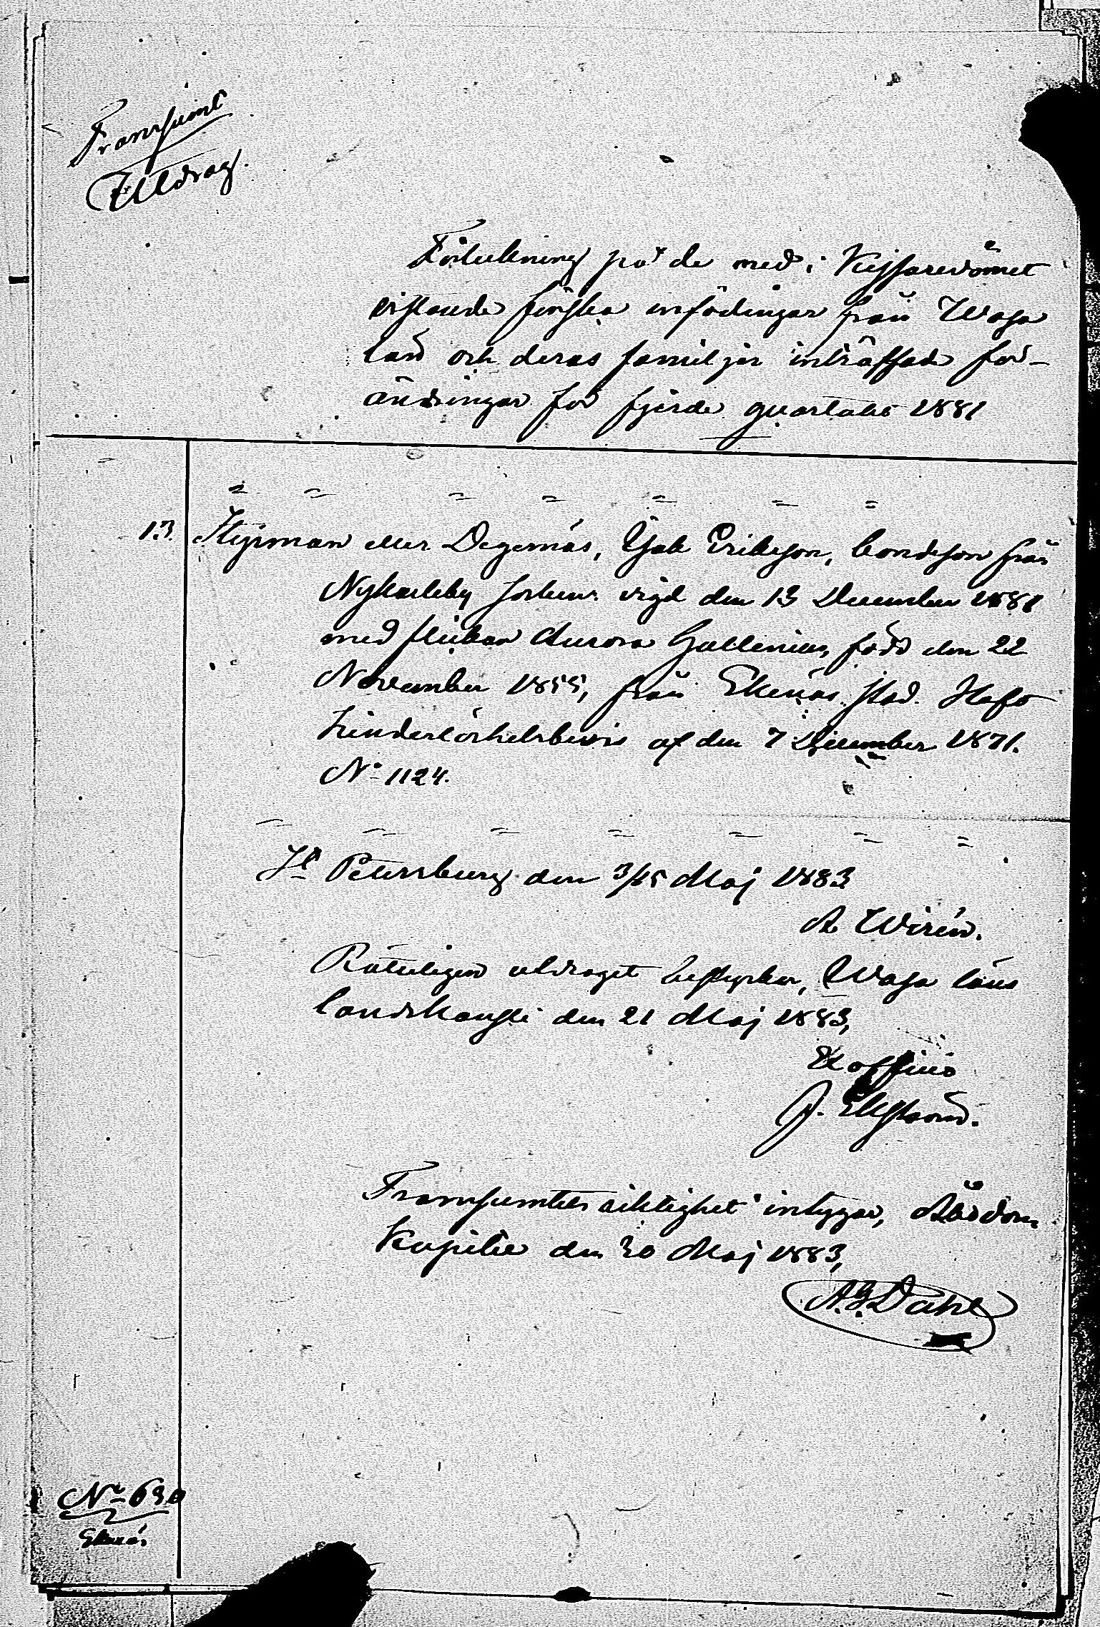 Transsumt
Utdrag.
Förteckning på de med i Kejsaredömet
vistande finska infödingar från Wasa
län och deras familjer inträffade för-
ändringar för fjerde quartalet 1881
13. Styrman eller Degernäs, Erikson, bondeson från
Nykarleby socken. vigd den 13 December 1881
med flickan Aurora Gallenius, född den 22
November 1855, från Ekenäs stad. Haft
hinderlöshetsbevis af den 7 December 1871.
No 1124.
St Petersburg den 3/15 Maj 1883
A Wirén.
Rätteligen utdraget bestyrker, Wasa läns
landskansli den 21 Maj 1883,
Ex officio
J. Ekström.
Transsumtets riktighet intygar, Åbo dom
kapitel den 30 Maj 1883,
A. G. Dahl
No 630
Ekenäs